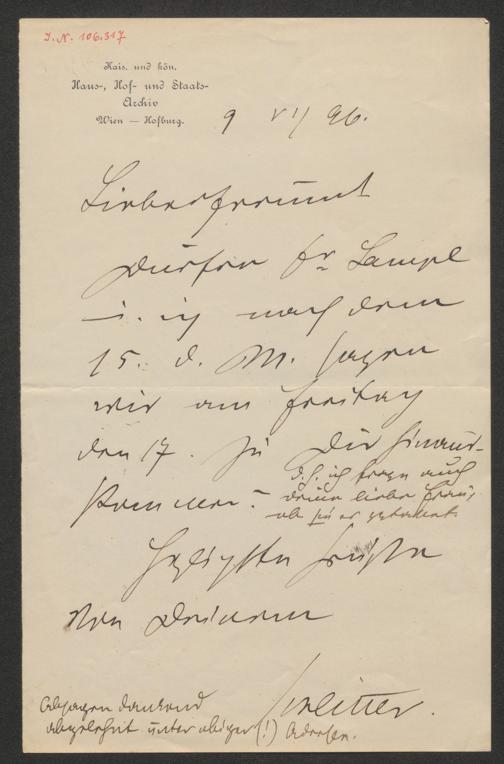 I.N. 106.317
Kais. und kön.
Haus-, Hof- und Staats-
Archiv
Wien — Hofburg.
9 VI/ 96.
Lieber Freund
Dürfen Dr Lampl
u. ich nach dem
15. d. M. sagen
wir am Freitag
den 17. zu Dir hinaus-
kommen? –
d. h. ich frage auch
deine liebe Frau,
ob sie es gestattet.
Herzlichste Grüße
von Deinem
Schlitter.
Absagen dankend
abgelehnt unter obiger (!) Adresse.